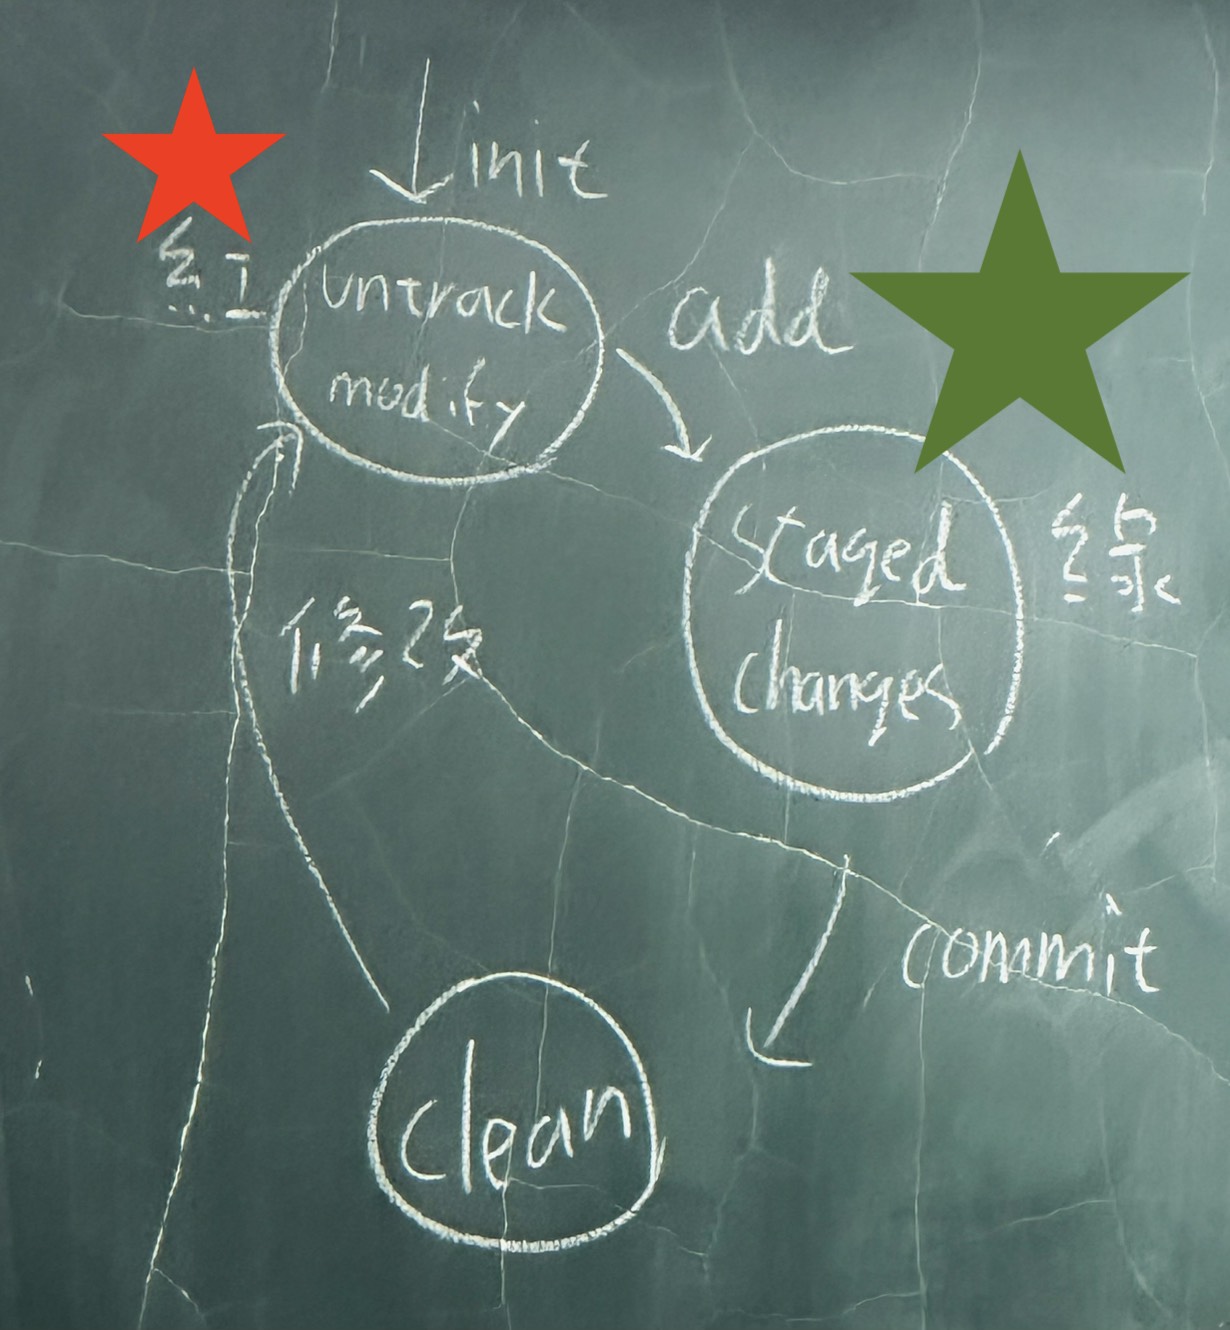 init
红
untrack
modify
add
staged
changes
绿
修改
commit
clean